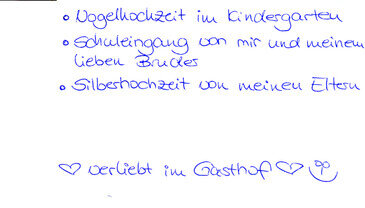 • Vogelhochzeit im Kindergarten
• Schuleingang von mir und meinem
lieben Bruder
• Silberhochzeit von meinen Eltern
♡ verliebt im Gasthof ♡